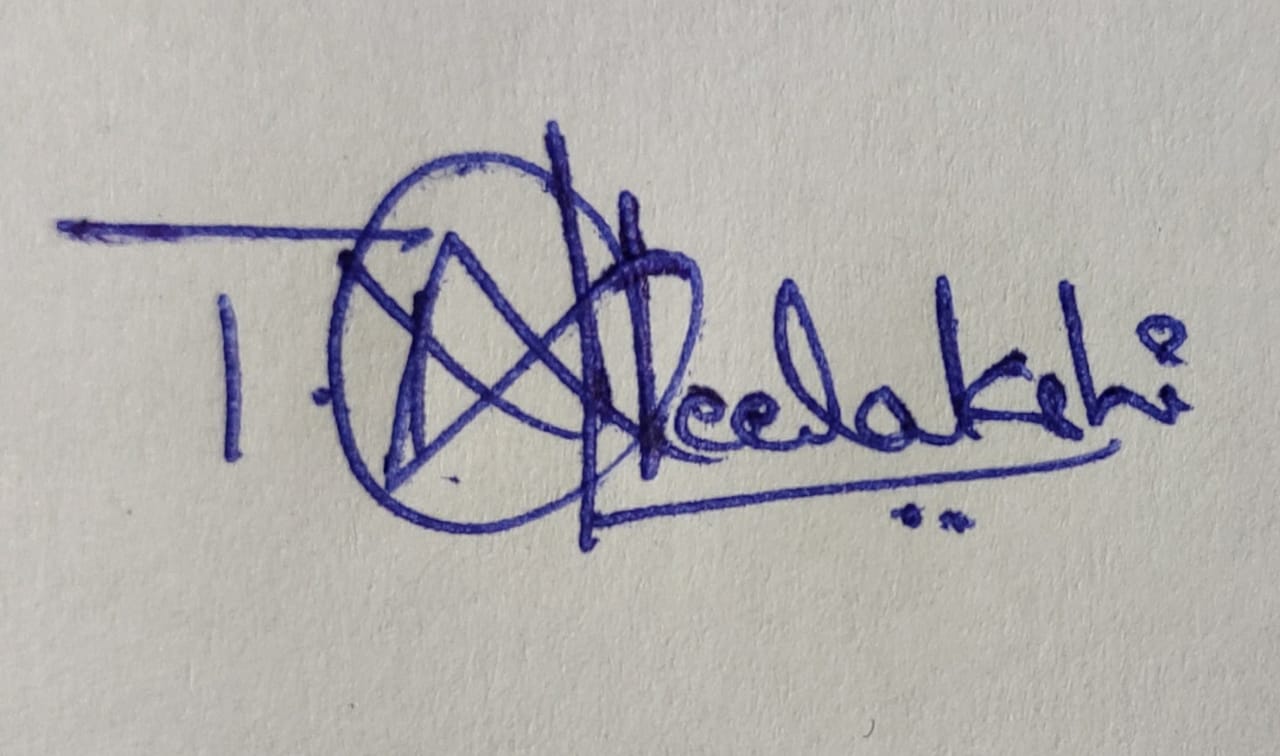 T. Neelakshi